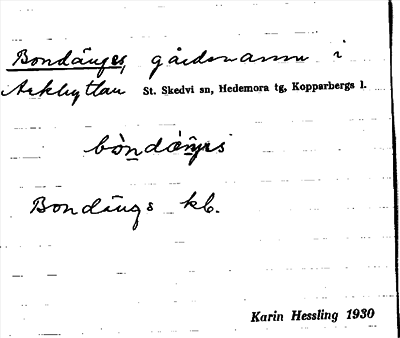 Bondänges, gårdsnamn i
Arkhyttan St. Skedvi sn, Hedemora tg, Kopparbergs l.
Bondängs kb.
Karin Hessling 1930